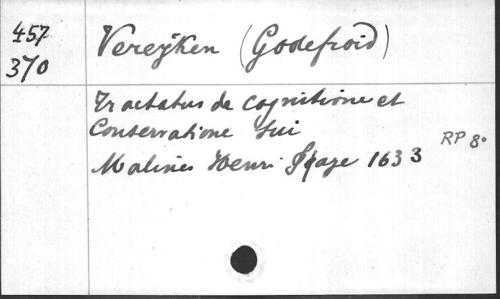 457
370
Vereÿken (Godefroid)
Tractatus de cognitione et
Conservatione sui
Malines Henri 1633
RP 8°